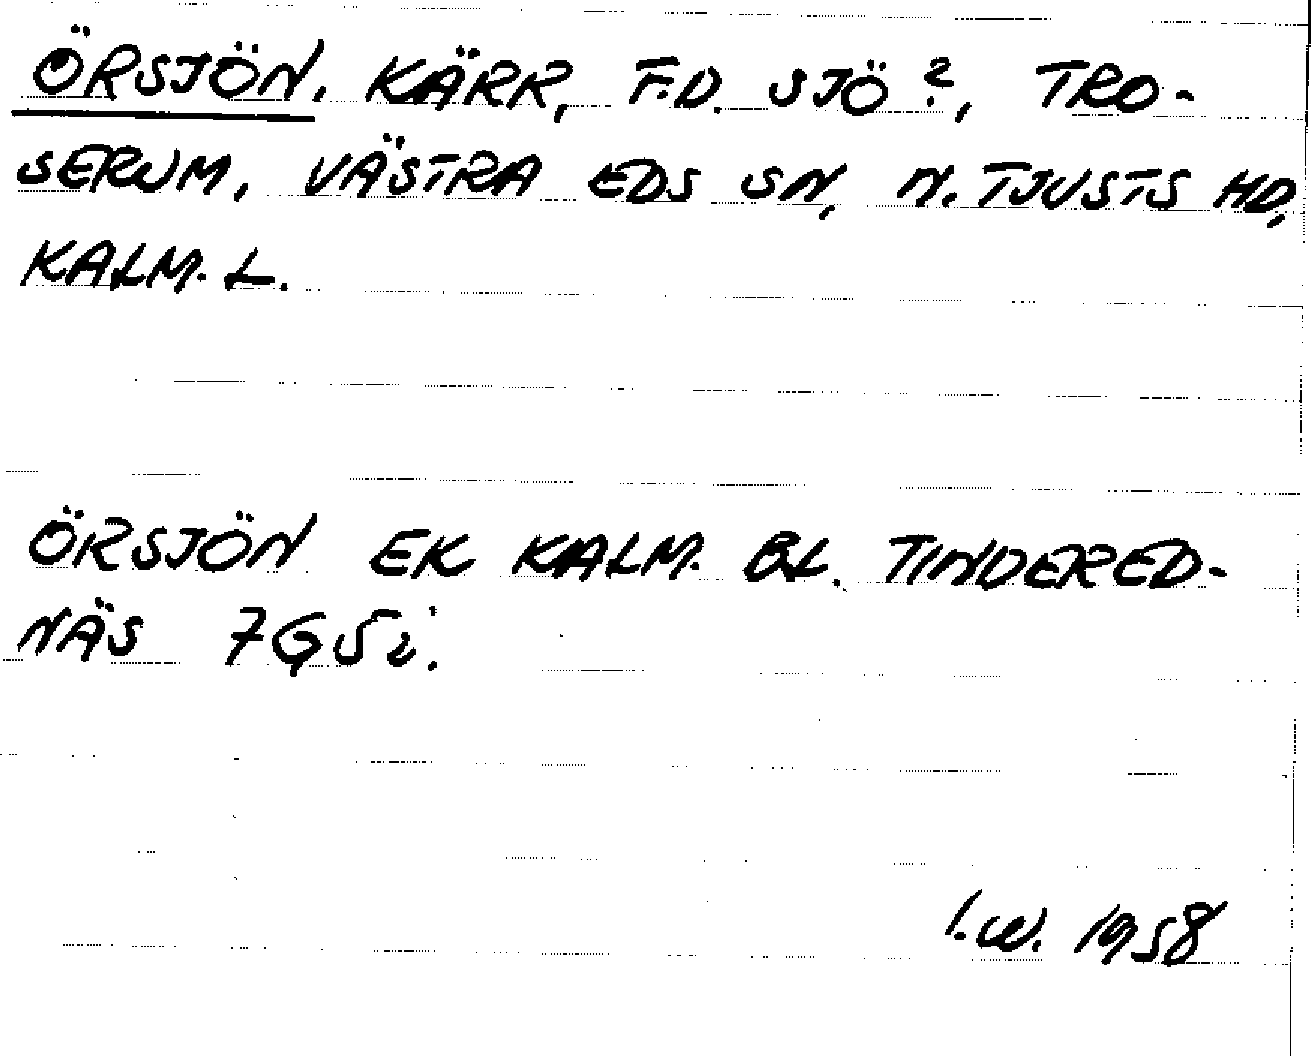 ÖRSJÖN. KÄRR, F.D. SJÖ?, TRO-
SERUM, VÄSTRA EDS SN, N. TJUSTS HD,
KALM. L.
ÖRSJÖN EK KALM. BL. TINDERED-
NÄS 7G5i.
I.W. 1958